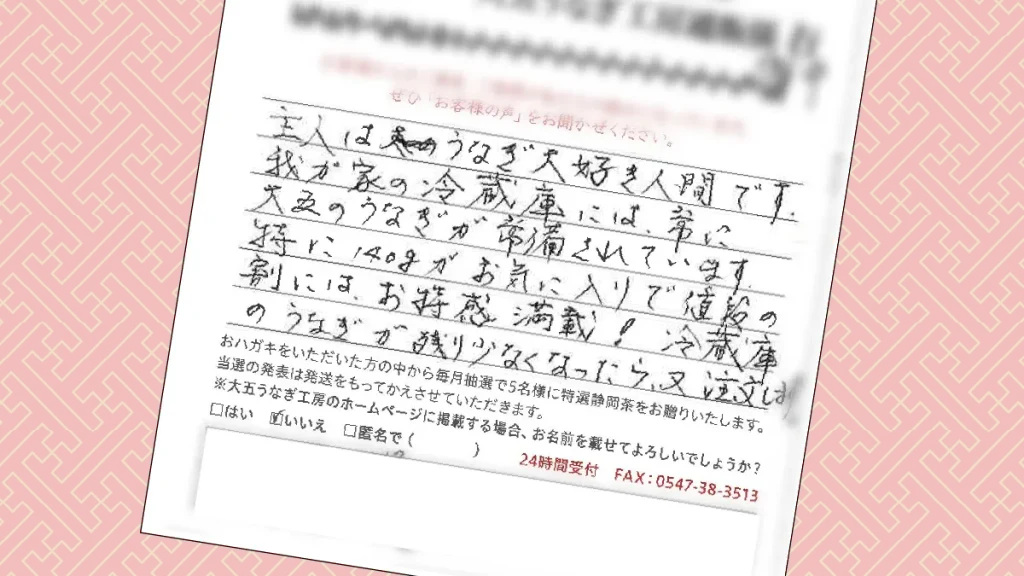 ぜひ「お客様の声」をお聞かせください。
主人はうなぎ大好き人間です。
我が家の冷蔵庫には、常に
大五のうなぎが常備されています。
特に140gがお気に入りで値段の
割には、お得感満載！冷蔵庫
のうなぎが残り少なくなったら、又注文し
おハガキをいただいた方の中から毎月抽選で5名様に特選静岡茶をお贈りいたします。
当選の発表は発送をもってかえさせていただきます。
※大五うなぎ工房のホームページに掲載する場合、お名前を載せてよろしいでしょうか？
□はい ☑いいえ □匿名で（ ）
24時間受付 FAX：0547-38-3513